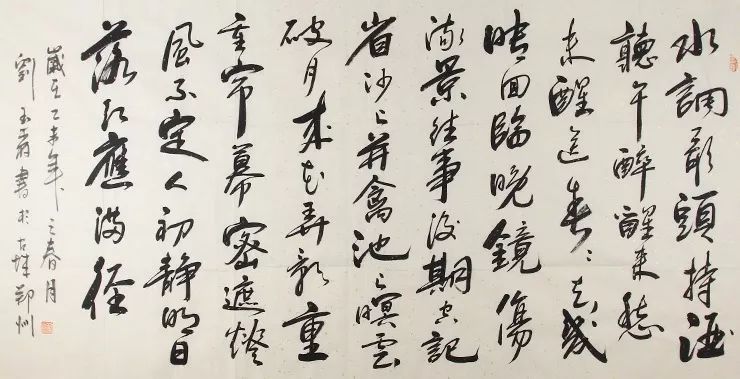 水調歌頭持酒
聽午醉醒來愁
未醒送春〻去幾
時回臨晚鏡傷
流景往事後期空記
省沙上並禽池上暝雲
破月來花弄影重
重帘幕密遮燈
風不定人初靜明日
落紅應滿徑
歲在乙未年之春月
劉玉書於古城鄭州